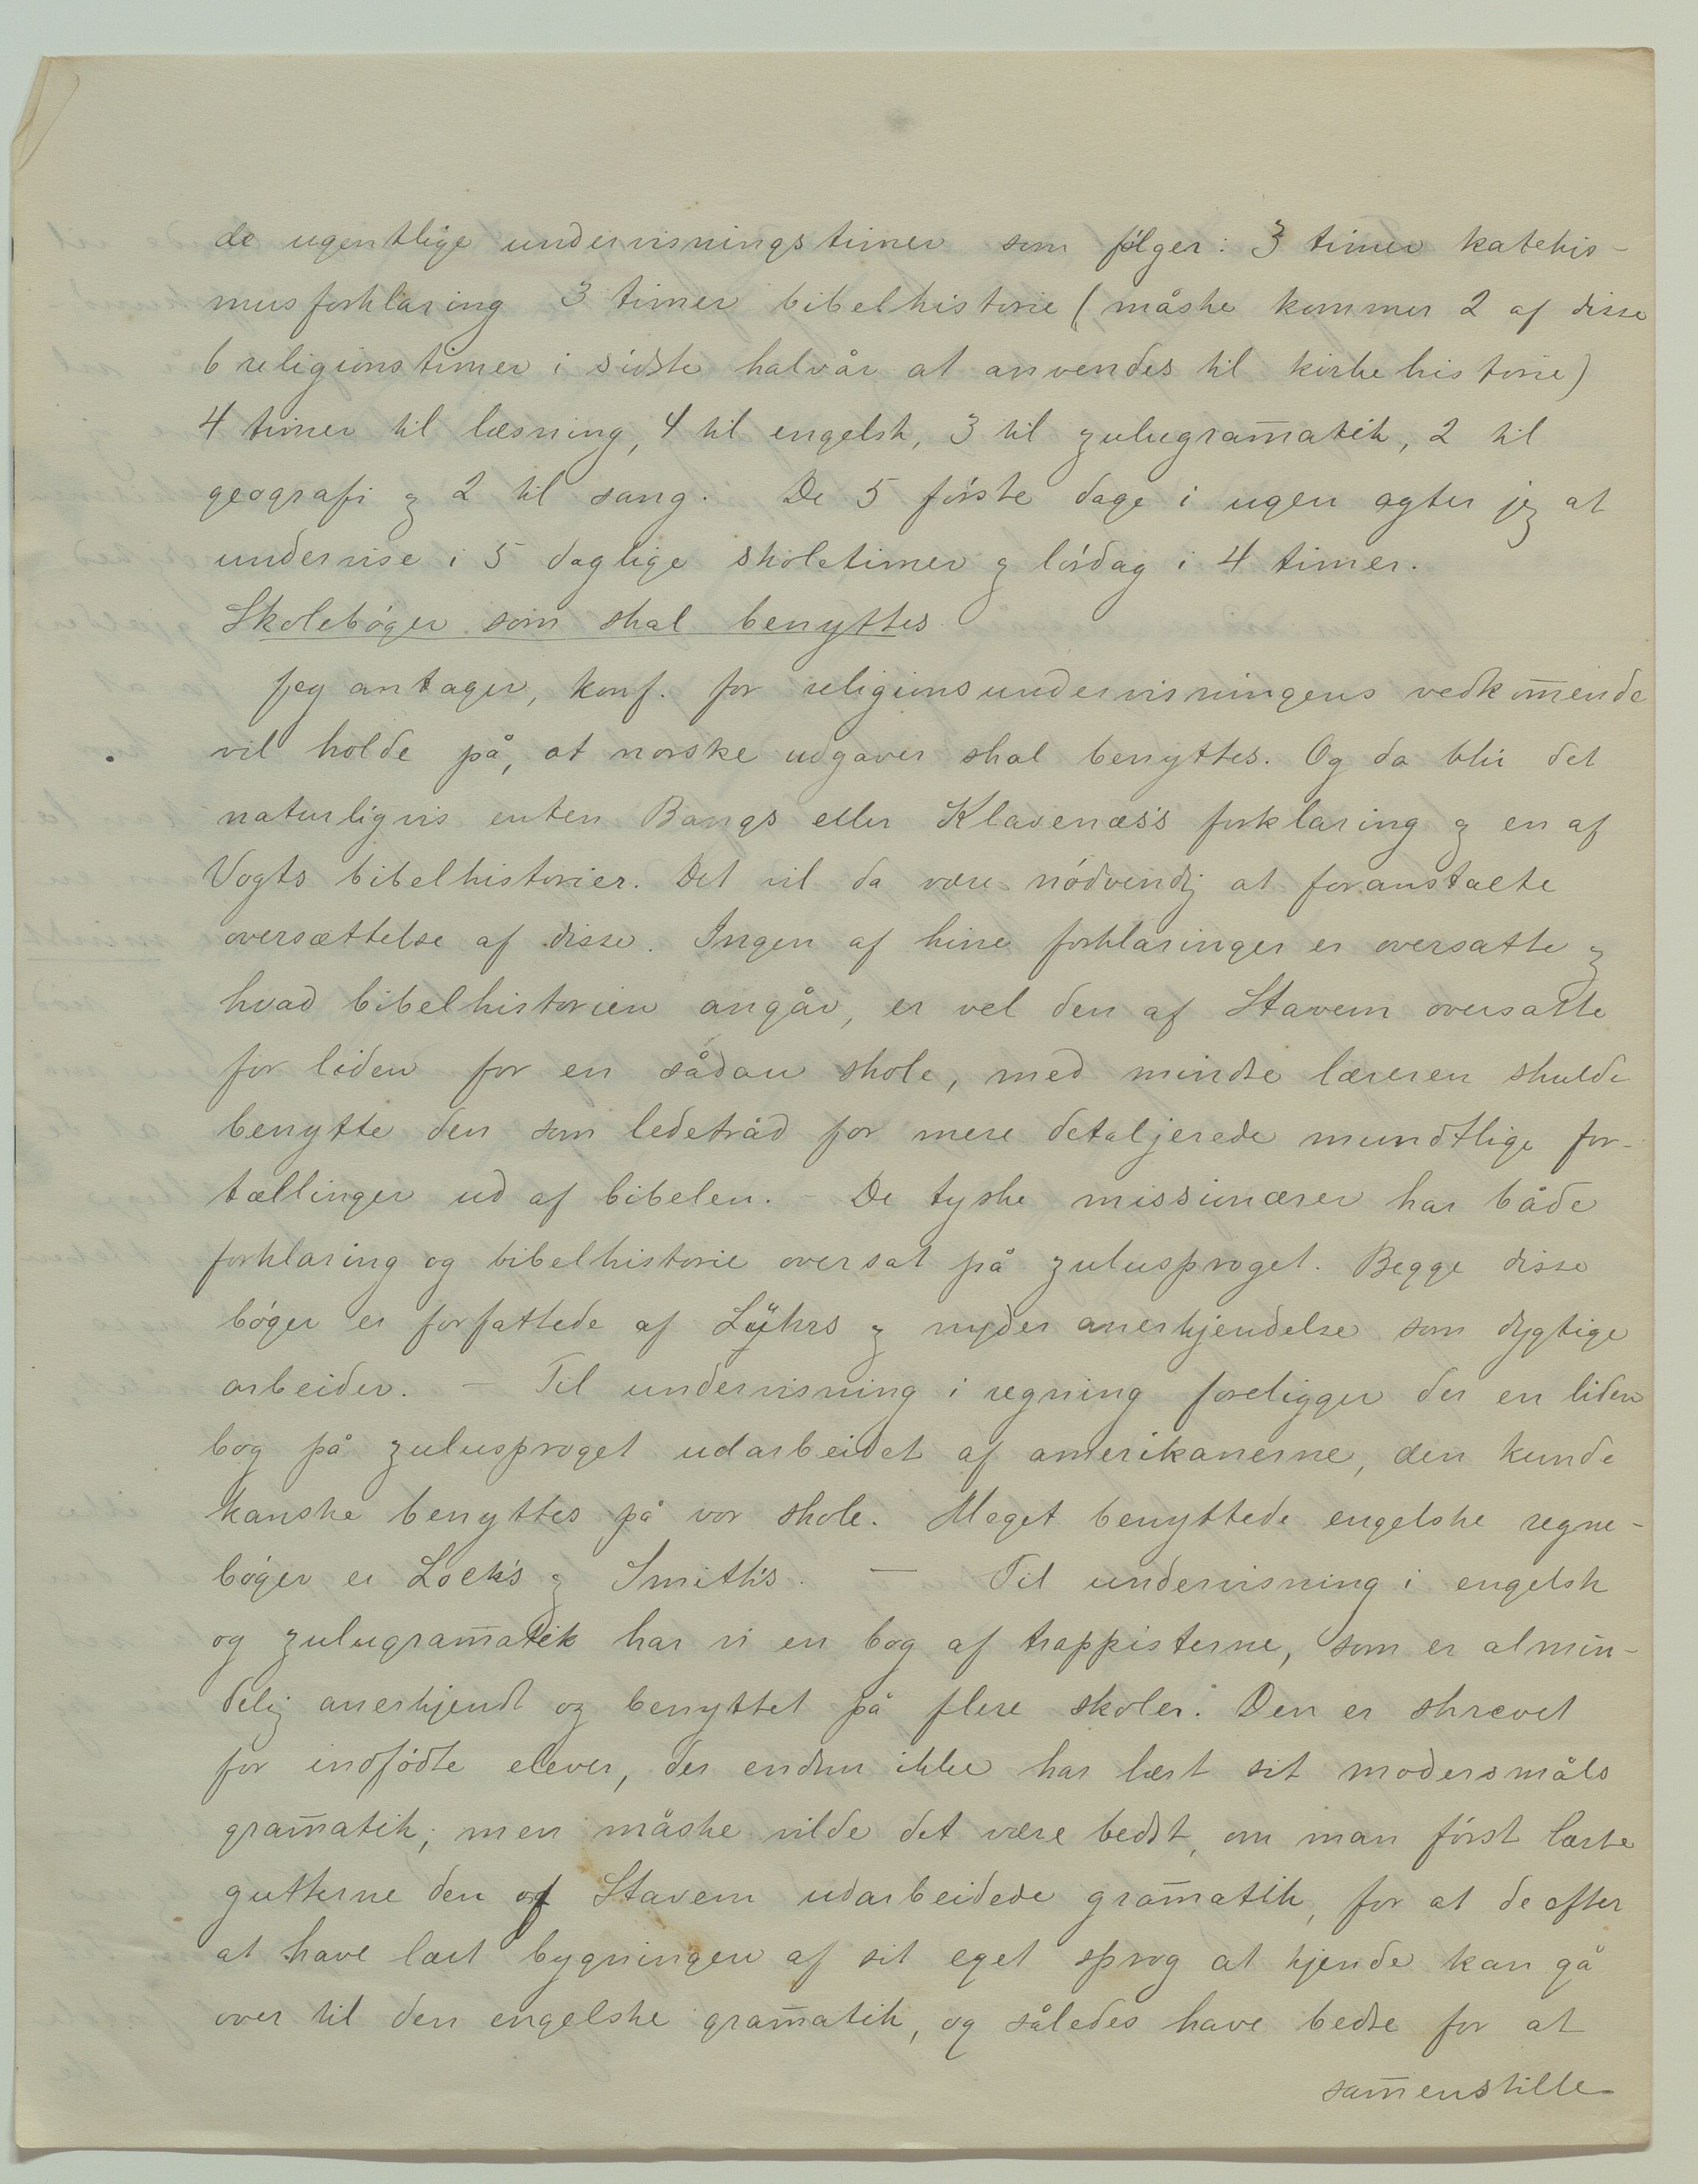 de ugentlige undervisningstimer som følger: 3 timer katekis-
musforklaring 3 timer bibelhistorie (måske kommer 2 af disse
6 religionstimer i sidste halvår at anvendes til kirkehistorie)
4 timer til læsning, 4 til engelsk, 3 til zulugram̄atik, 2 til
geografi og 2 til sang. De 5 første dage i ugen agter jeg at
undervise i 5 daglige skoletimer og lørdag i 4 timer.
Skolebøger som skal benyttes
Jeg antager, konf. for religionsundervisningens vedkom̄ende
vil holde på, at norske udgaver skal benyttes. Og da blir det
naturligvis enten Bangs eller Klavenæs's forklaring og en af
Vogts bibelhistorier. Det vil da være nødvendig at foranstalte
oversættelse af disse. Ingen af hine forklaringer er oversatte og
hvad bibelhistorien angår, er vel den af Stavem oversatte
for liden for en sådan skole, med mindre læreren skulde
benytte den som ledetråd for mere detaljerede mundtlige for-
tællinger ud af bibelen. - De tyske missionærer har både
forklaring og bibelhistorie oversat på zulusproget. Begge disse
bøger er forfattede af Lÿhrs og nyder anerkjendelse som dygtige
arbeider. - Til undervisning i regning foreligger der en liden
bog på zulusproget udarbeidet af amerikanerne, den kunde
kanske benyttes på vor skole. Meget benyttede engelske regne-
bøger er Lock's og Smith's. — Til undervisning i engelsk
og zulugram̄atik har vi en bog af trappisterne, som er almin-
delig anerkjendt og benyttet på flere skoler. Den er skrevet
for indfødte elever, der endnu ikke har lært sit modersmåls
gram̄atik; men måske vilde det være bedst, om man først lærte
gutterne den af Stavem udarbeidede gram̄atik, for at de efter
at have lært bygningen af sit eget sprog at kjende kan gå
over til den engelske gram̄atik, og således have bedre for at
sam̄enstille